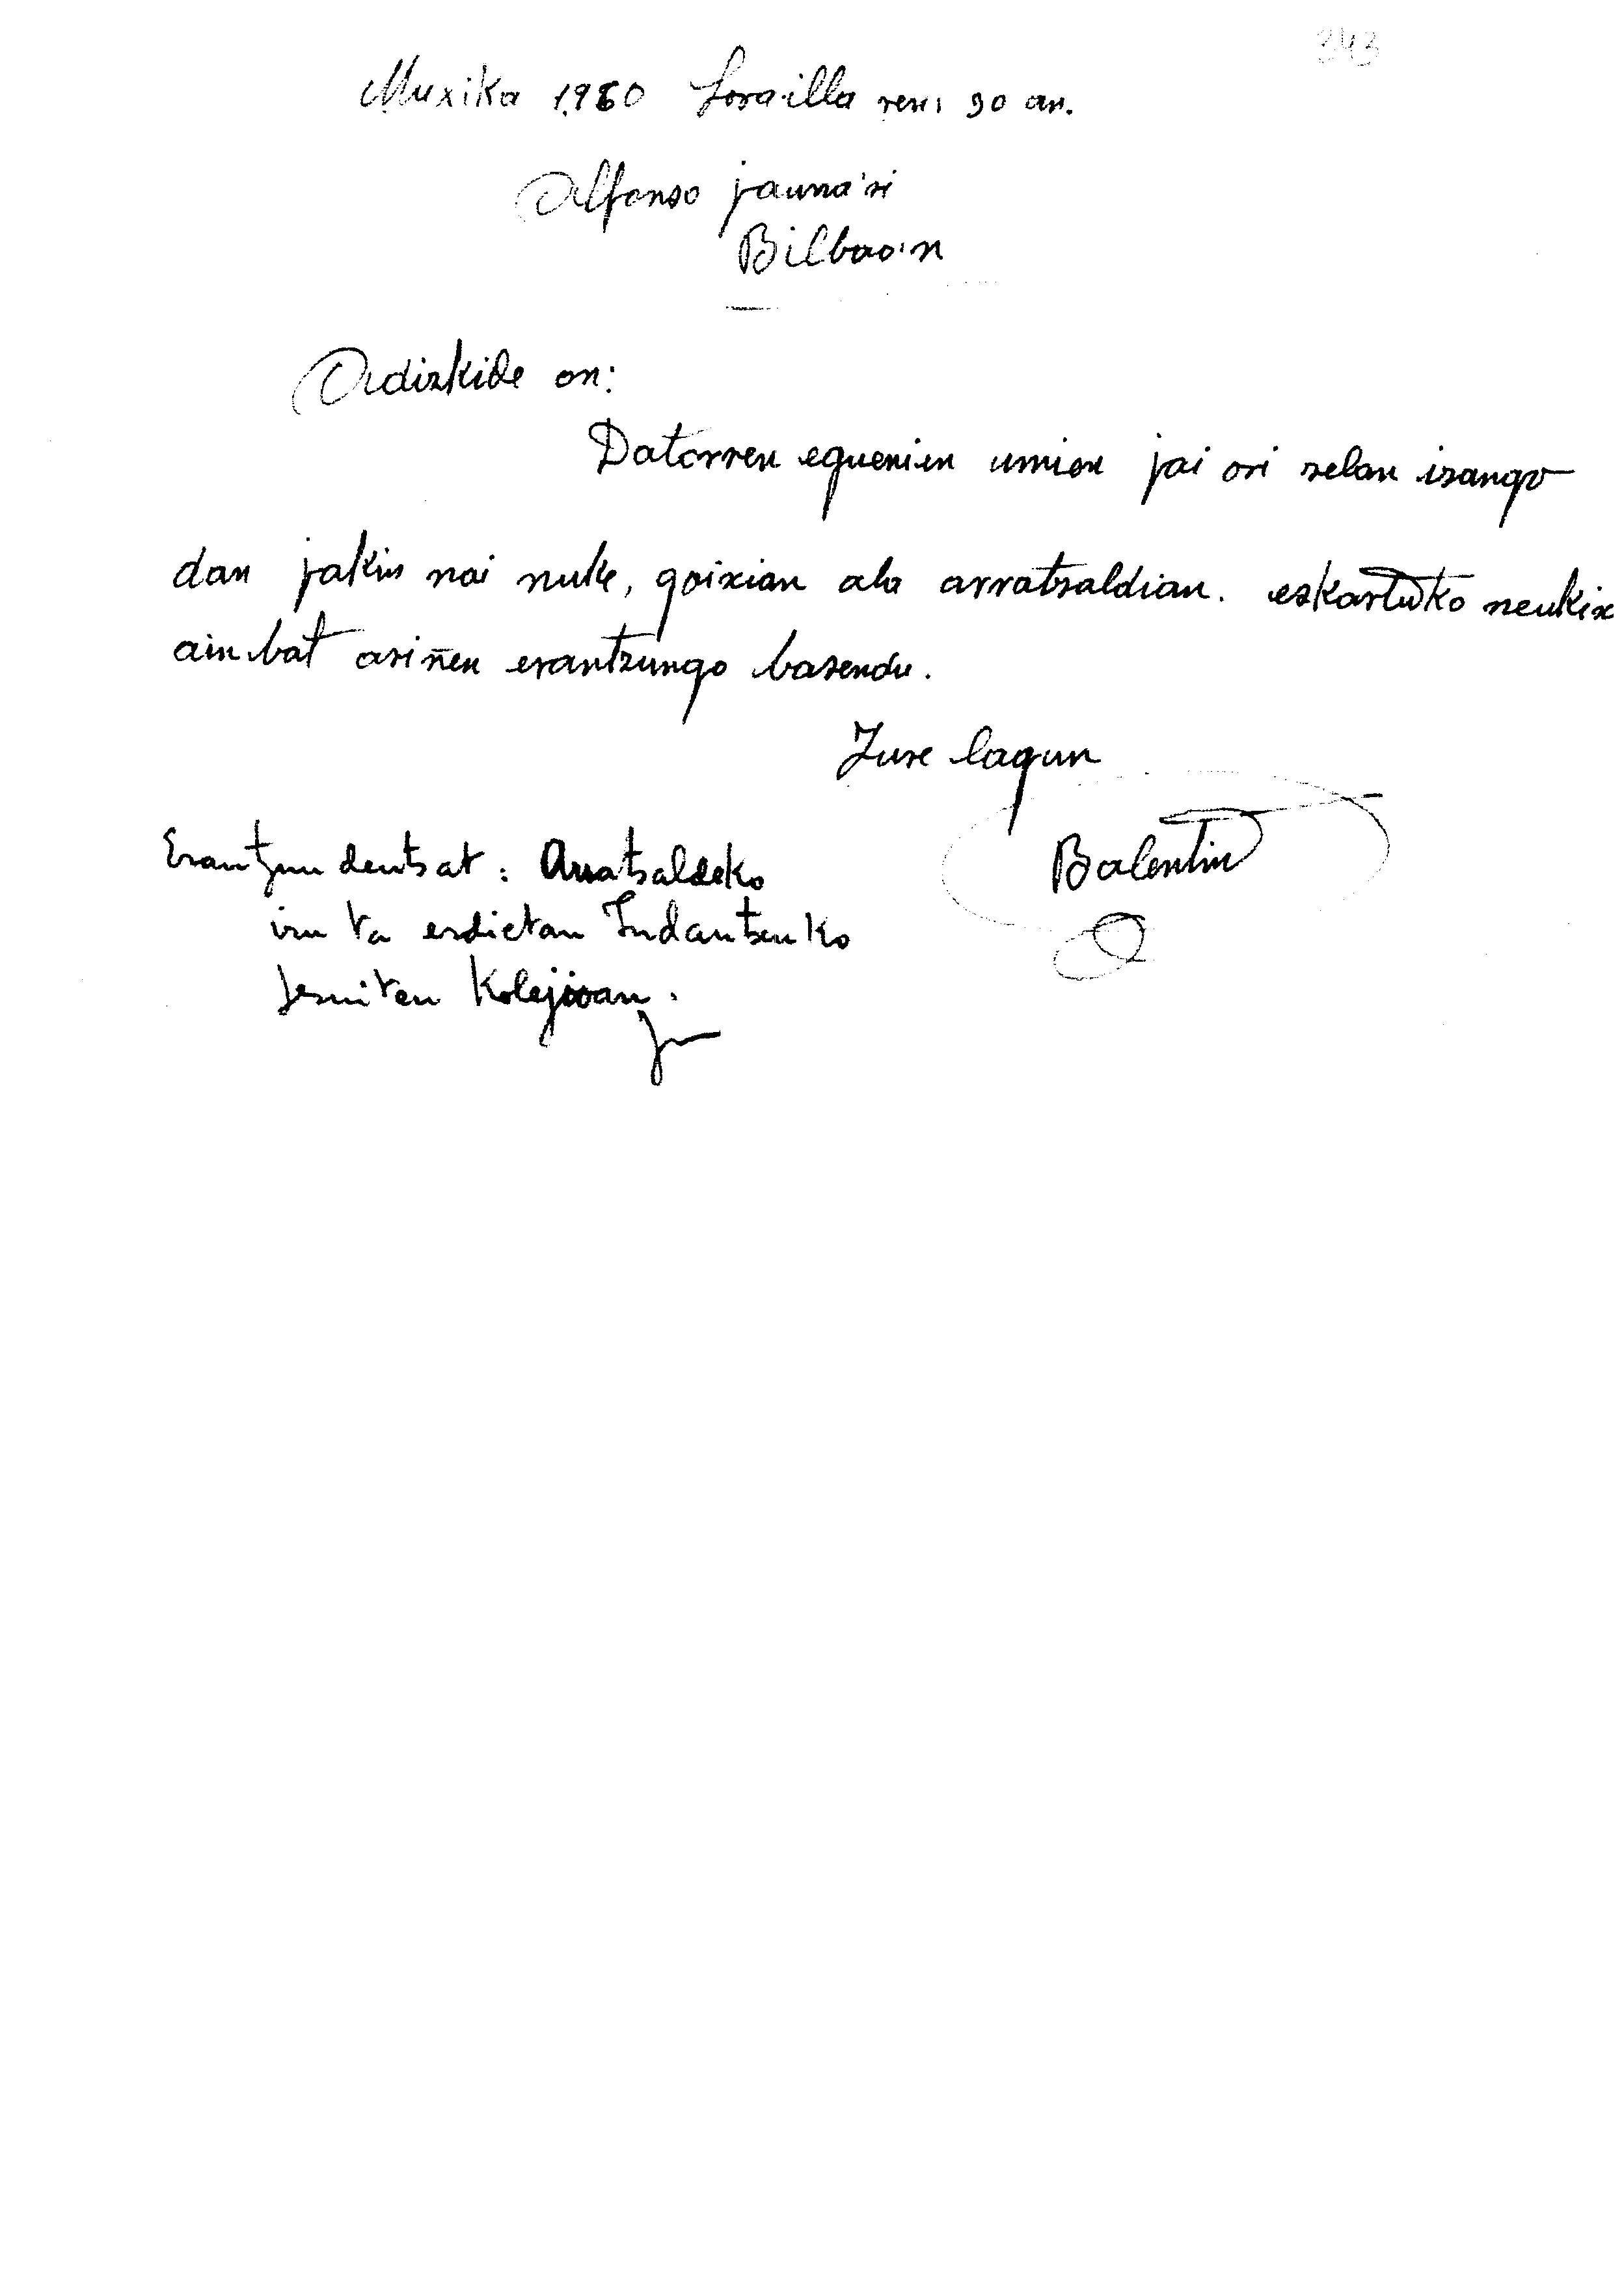 343
Muxika 1960 Lora-illa ren 30 an.
Alfonso jauna'ri
Bilbao'n
Adizkide on:
Datorren eguenien umien jai ori zelan izango
dan jakin nai nuke, goixian ala arratzaldian. eskartuko neukix
ainbat ariñen erantzungo bazendu.
Zure lagun
Balentin
Erantzun deutsat: Arratsaldeko
iru ta erdietan Indautxuko
Jesuiten Kolejioan.